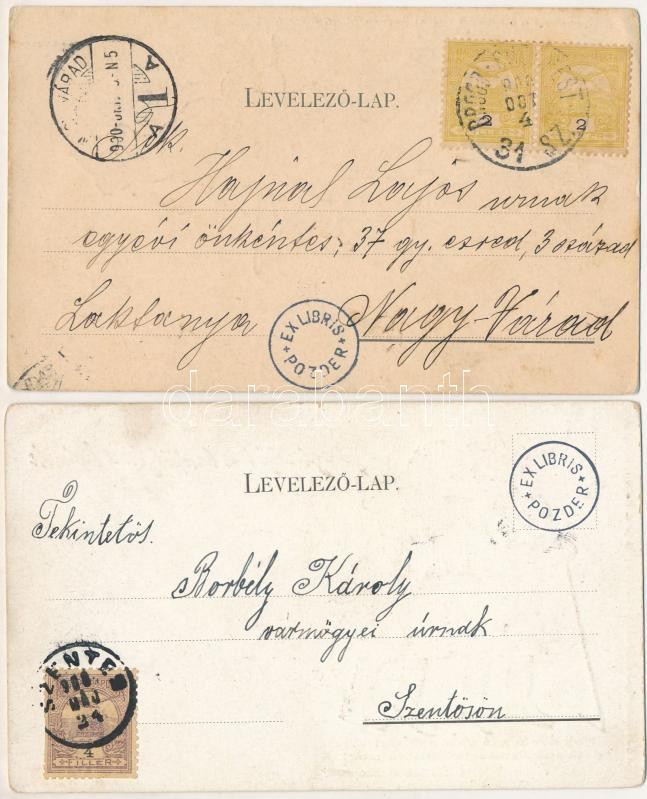 VÁRAD
900 OKT 5 N5
A 1 A
LEVELEZŐ-LAP.
BUDAPEST
900
OKT
4
31 SZ.
2 2
Hajnal Lajos urnak
egyévi önkéntes, 37 gy. esred, 3 század
Laktanya
EX LIBRIS
POZDER
Nagy-Várad
darabanth
LEVELEZŐ-LAP.
EX LIBRIS
POZDER
Tekintetős.
Borbély Károly
vármögyei úrnak
SZENTES
908
MÁJ
24
4
FILLÉR
Szentösön